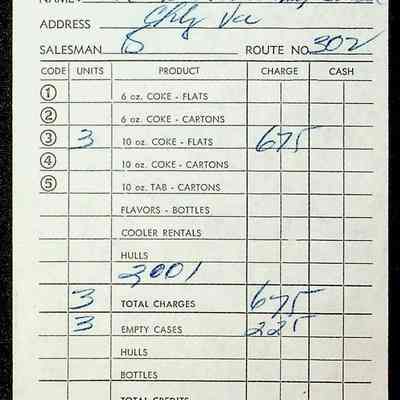 NAME
ADDRESS Chly Va
SALESMAN B ROUTE NO. 302
CODE UNITS PRODUCT CHARGE CASH
1 6 oz. COKE - FLATS
2 6 oz. COKE - CARTONS
3 3 10 oz. COKE - FLATS 675
4 10 oz. COKE - CARTONS
5 10 oz. TAB - CARTONS
FLAVORS - BOTTLES
COOLER RENTALS
HULLS
3001
3 TOTAL CHARGES 675
3 EMPTY CASES 225
HULLS
BOTTLES
TOTAL CREDITS